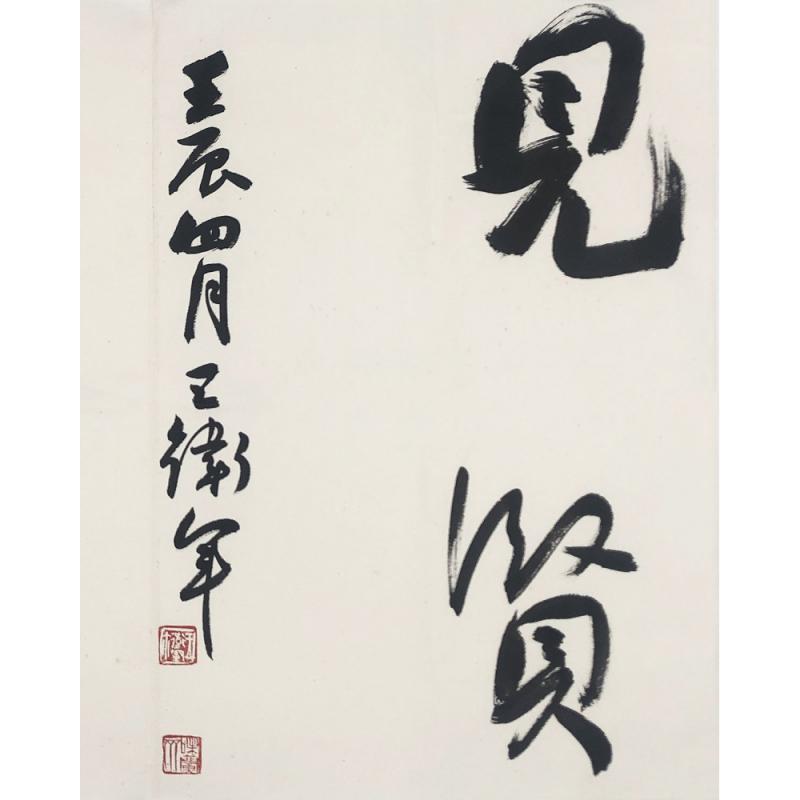 見賢
壬辰四月王衛軍